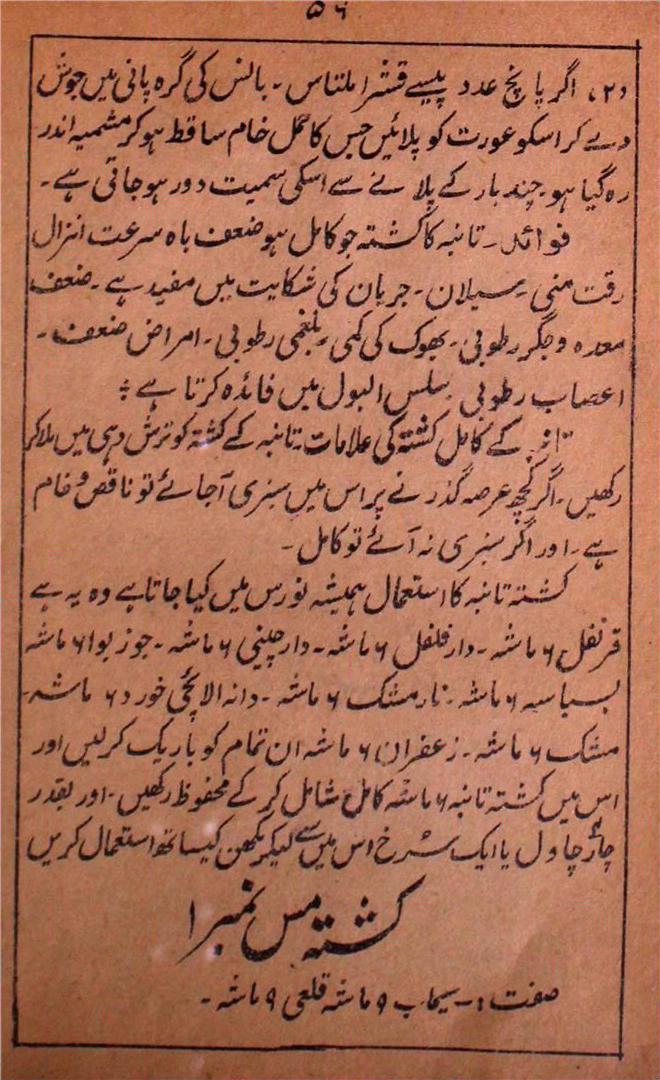 ۵۶
(۲) اگر پانچ عدد پیسے قشر املتاس ۔ بانس کی گرہ پانی میں جوش
دے کر اسکو عورت کو پلائیں جس کا حمل خام ساقط ہو کر مشیمیہ اندر
رہ گیا ہو ۔ چند بار کے پلانے سے اسکی سمیت دور ہو جاتی ہے ۔
فوائد ۔ تانبہ کا کشتہ جو کامل ہو ضعف باہ سرعت انزال
رقت منی ۔ سیلان ۔ جریان کی شکایت میں مفید ہے ۔ ضعف
معدہ و جگر رطوبی ۔ بھوک کی کمی ۔ بلغمی رطوبی ۔ امراض ضعف ۔
اعصاب رطوبی سلس البول میں فائدہ کرتا ہے ؞
تانبہ کے کامل کشتہ کی علامات ۔ تانبہ کے کشتہ کو ترش دہی میں ملا کر
رکھیں ۔ اگر کچھ عرصہ گذرنے پر اس میں سبزی آجائے تو ناقص و خام
ہے ۔ اور اگر سبزی نہ آئے تو کامل ۔
کشتہ تانبہ کا استعمال ہمیشہ نورس میں کیا جاتا ہے وہ یہ ہے
قرنفل ۶ ماشہ ۔ دار فلفل ۶ ماشہ ۔ دار چینی ۶ ماشہ ۔ جوز بوا ۶ ماشہ
بسباسہ ۶ ماشہ ۔ نار مشک ۶ ماشہ ۔ دانہ الائچی خورد ۶ ماشہ ۔
مشک ۶ ماشہ ۔ زعفران ۶ ماشہ ان تمام کو باریک کر لیں اور
اس میں کشتہ تانبہ ۶ ماشہ کامل شامل کر کے محفوظ رکھیں ۔ اور بقدر
چار چاول یا ایک سُرخ اس میں سے لیکر مکھن کیساتھ استعمال کریں
کشتہ مس نمبر ۱
صفت :۔ سیماب ۹ ماشہ قلعی ۹ ماشہ ۔